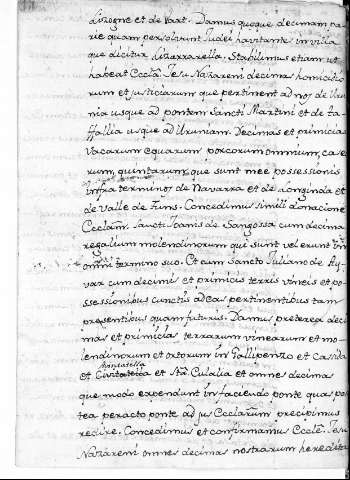 Lizagne et de Vart. Damus quoque decimam pa-
rie quam persolvunt Judei havitante in villa
que dicitur Lizarrarella. Stabilimus etiam ut
habeat Eccla. Jesu Nazareni decimas homicidio
rum et justiciarum que pertinent ad nos de Uru
nia usque ad pontem Sancti Martini et de ta-
ffallia usque ad Uruniam. Decimas et primicia
vacarum equarum porcorum omnium, cas
rum, quintarum, que sunt mee possessionis
infra terminos de Navarra et de Longinda et
de Valle de Funs. Concedimus simili donacione
Ecclam. Sancti Joanis de Sangossa cum decima
regalium molendinorum qui sunt vel erunt in
omni termino suo. Et cum Sancto Juliano de Ay-
var cum decimis et primicis terris vineis et po-
ssessionibus cunctis ad eas pertinentibus tam
presentibus quam futuris. Damus preterea deci
mas et primicias terrarum vinearum et mo-
lendinorum et ortorum in Gallipenzo et Casida
et Montatella et Sta. Eulalia et omnes decimas
que modo expendunt in faciendo ponte quas pos
tea peracto ponte ad jus Ecclarum precipimus
redire. Concedimus et confirmamus Eccle. Jesu
Nazareni omnes decimas nostrarum heredita